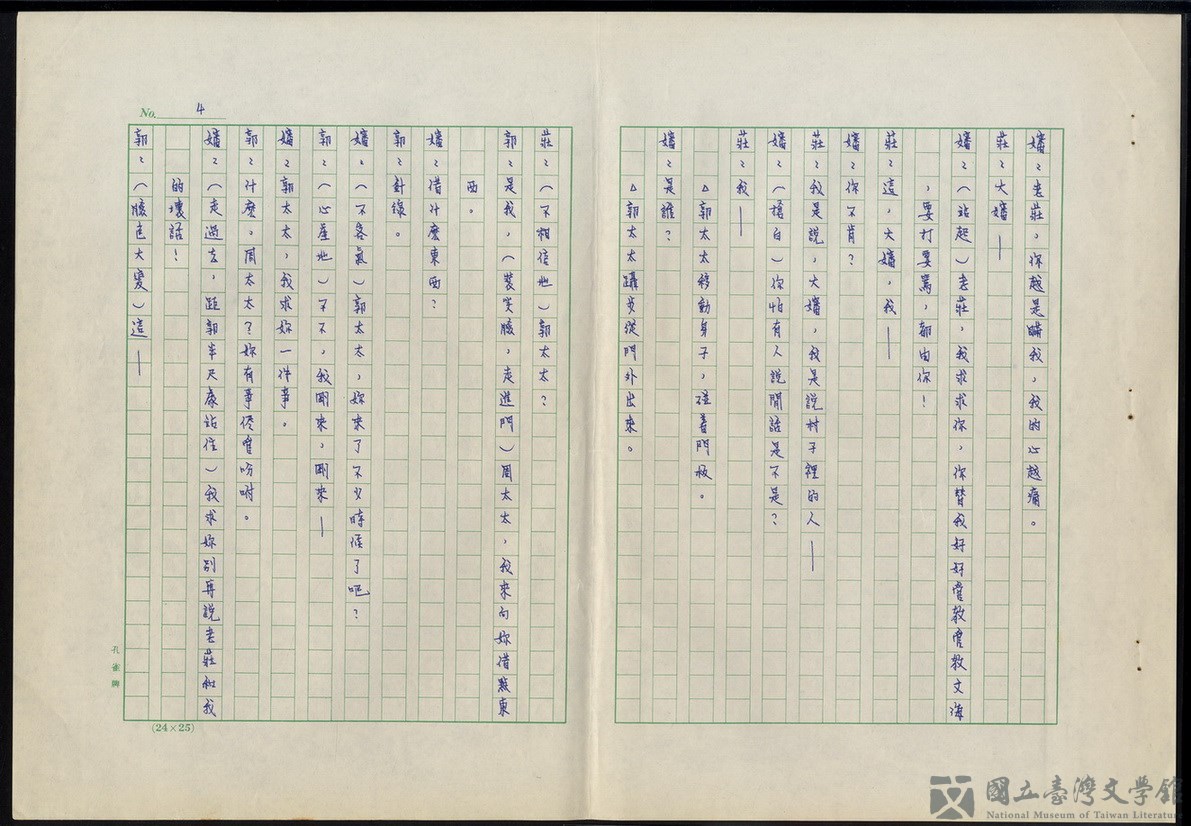 嬸：老莊，你越是瞞我，我的心越痛。
莊：大嬸——
嬸：（站起）老莊，我求求你，你替我好好管教管教文海
，要打要罵，都由你！
莊：這，大嬸，我——
嬸：你不肯？
莊：我是說，大嬸，我是說村子裡的人——
嬸：（搶白）你怕有人說閒話是不是？
莊：我——
△郭太太移動身子，碰著門板。
嬸：是誰？
△郭太太躡步從門外出來。
莊：（不相信地）郭太太？
郭：是我，（裝笑臉，走進門）周太太，我來向妳借點東
西。
嬸：借什麼東西？
郭：針線。
嬸：（不客氣）郭太太，妳來了不少時候了吧？
郭：（心虛地）不不，我剛來，剛來——
嬸：郭太太，我求妳一件事。
郭：什麼。周太太？妳有事侭管吩咐。
嬸：（走過去，距郭半尺處站住）我求妳別再說老莊和我
的壞話！
郭：（臉色大變）這——
No. 4
孔雀牌
(24×25)
國立臺灣文學館
National Museum of Taiwan Literature